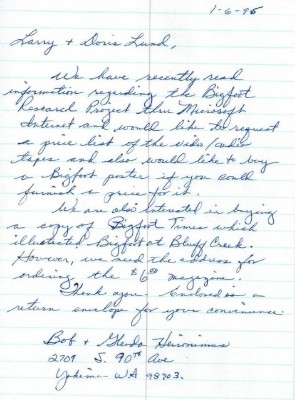 1-6-96
Larry + Doris Lund,
We have recently read
information regarding the Bigfoot
Research Project thru Microsoft
Internet and would like to request
a price list of the video/audio
tapes and also would like to buy
a Bigfoot poster if you could
furnish a price for it.
We are also interested in buying
a copy of Bigfoot Times which
illustrated Bigfoot at Bluff Creek.
However, we need the address for
ordering the $6.00 magazine.
Thank you. Enclosed is a
return envelope for your convenience.
Bob + Glenda Heironimus
2709 S. 90th Ave
Yakima WA 98903.